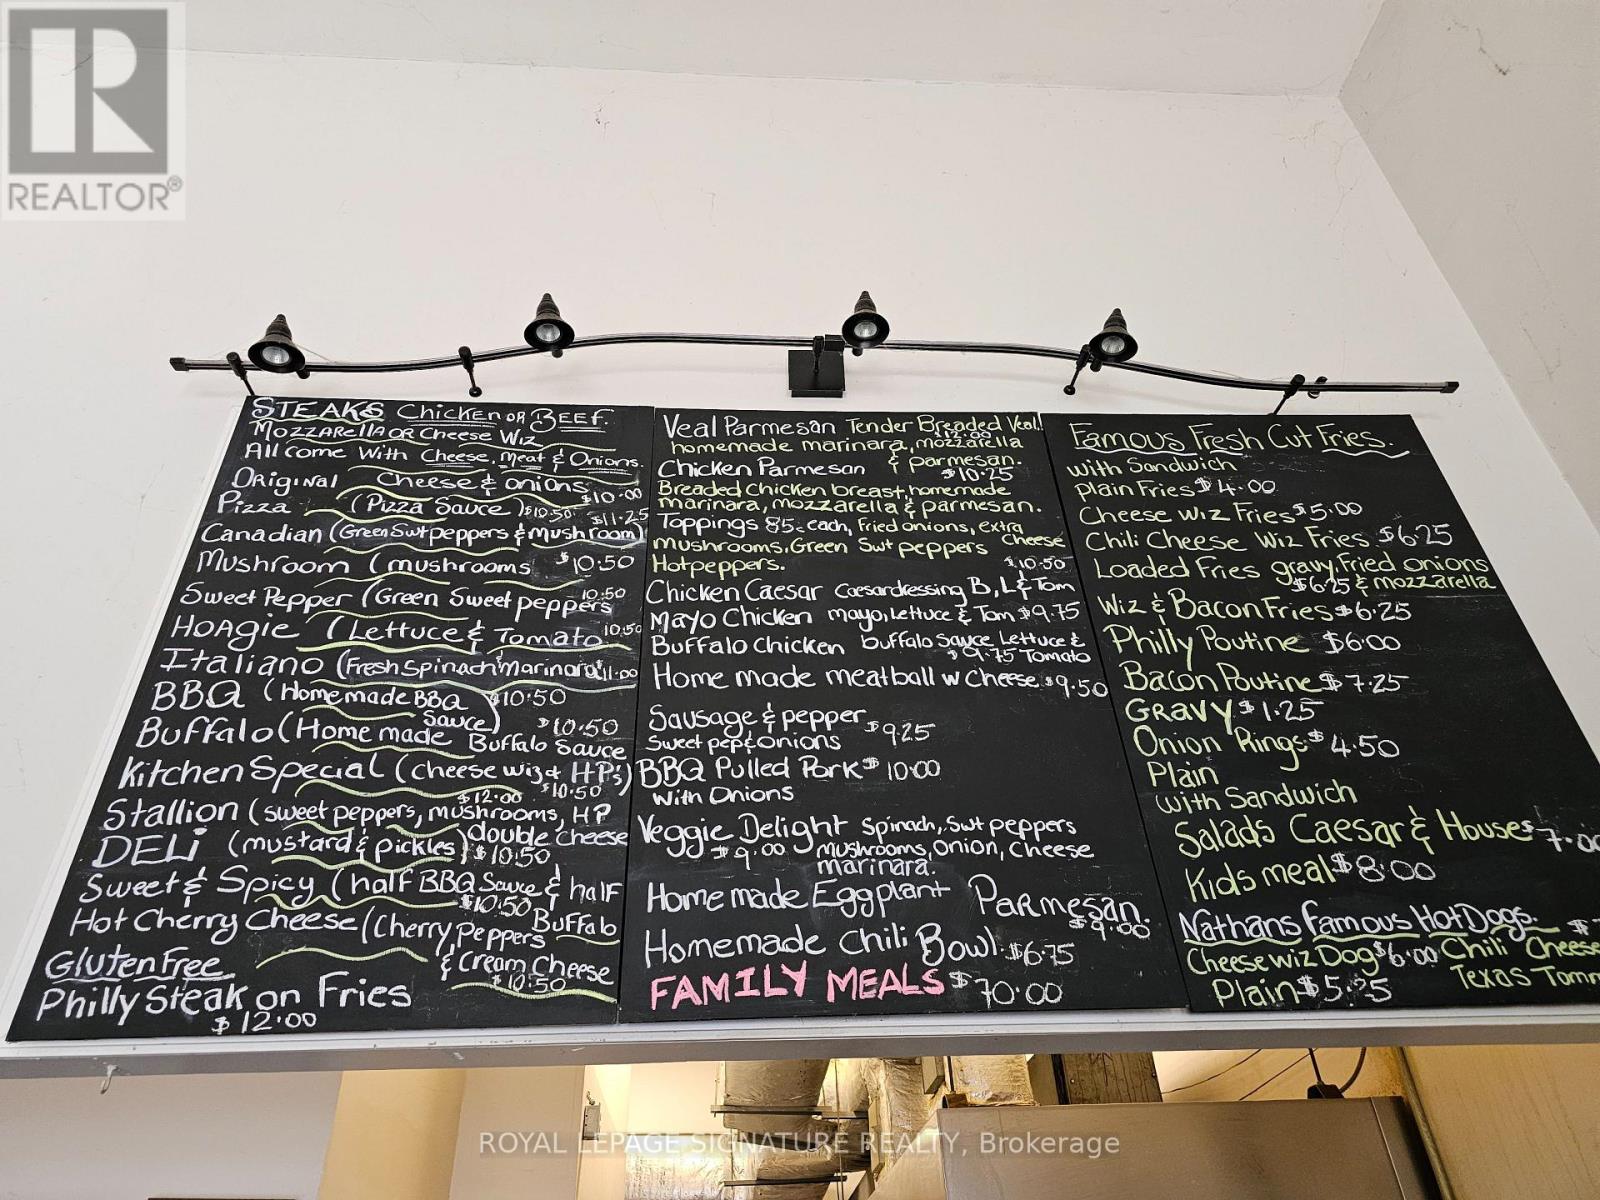 REALTOR®
STEAKS Chicken or BEEF.
Mozzarella or Cheese Wiz
All come With Cheese, Meat & Onions.
Original Cheese & onions $10.00
Pizza (Pizza Sauce) $10.50 $11.25
Canadian (Green Swt peppers & mushroom)
Mushroom (mushrooms $10.50
Sweet Pepper (Green Sweet peppers 10.50
HOAgie (Lettuce & Tomato 10.50
Italiano (Fresh Spinach Marinara $11.00
BBQ (Homemade BBQ Sauce) $10.50
Buffalo (Home made Buffalo Sauce $10.50
Kitchen Special (cheese wiz & H.P's) $10.50
Stallion (sweet peppers, mushrooms, HP $12.00
double cheese
DELi (mustard & pickles) $10.50
Sweet & Spicy (half BBQ Sauce & half Buffalo $10.50
Hot Cherry Cheese (Cherry peppers & Cream Cheese $10.50
Gluten Free
Philly Steak on Fries
$12.00
Veal Parmesan Tender Breaded Veal.
homemade marinara, mozzarella & parmesan.
Chicken Parmesan $10.25
Breaded Chicken breast, homemade
marinara, mozzarella & parmesan.
Toppings 85¢ each, fried onions, extra Cheese
mushrooms. Green Swt peppers
Hotpeppers. $10.50
Chicken Caesar Caesardressing B, L & Tom
Mayo Chicken mayo, lettuce & Tom $9.75
Buffalo Chicken buffalo sauce Lettuce & Tomato $9.75
Home made meatball w Cheese $9.50
Sausage & pepper $9.25
Sweet pep & onions
BBQ Pulled Pork $10.00
With Onions
Veggie Delight Spinach, Swt peppers
$9.00 mushrooms, onion, cheese
marinara.
Home made Eggplant Parmesan. $9.00
Homemade Chili Bowl. $6.75
FAMILY MEALS $70.00
Famous Fresh Cut Fries.
with Sandwich
plain Fries $4.00
Cheese Wiz Fries $5.00
Chili Cheese Wiz Fries $6.25
Loaded Fries gravy, Fried onions
$6.25 & mozzarella
Wiz & Bacon Fries $6.25
Philly Poutine $6.00
Bacon Poutine $7.25
GRAVY $1.25
Onion Rings $4.50
Plain
With Sandwich
Salads Caesar & House $7.00
Kids meal $8.00
Nathans Famous Hot Dogs. $
Cheese Wiz Dog $6.00 Chili Cheese
Plain $5.25 Texas Tomm
ROYAL LEPAGE SIGNATURE REALTY, Brokerage